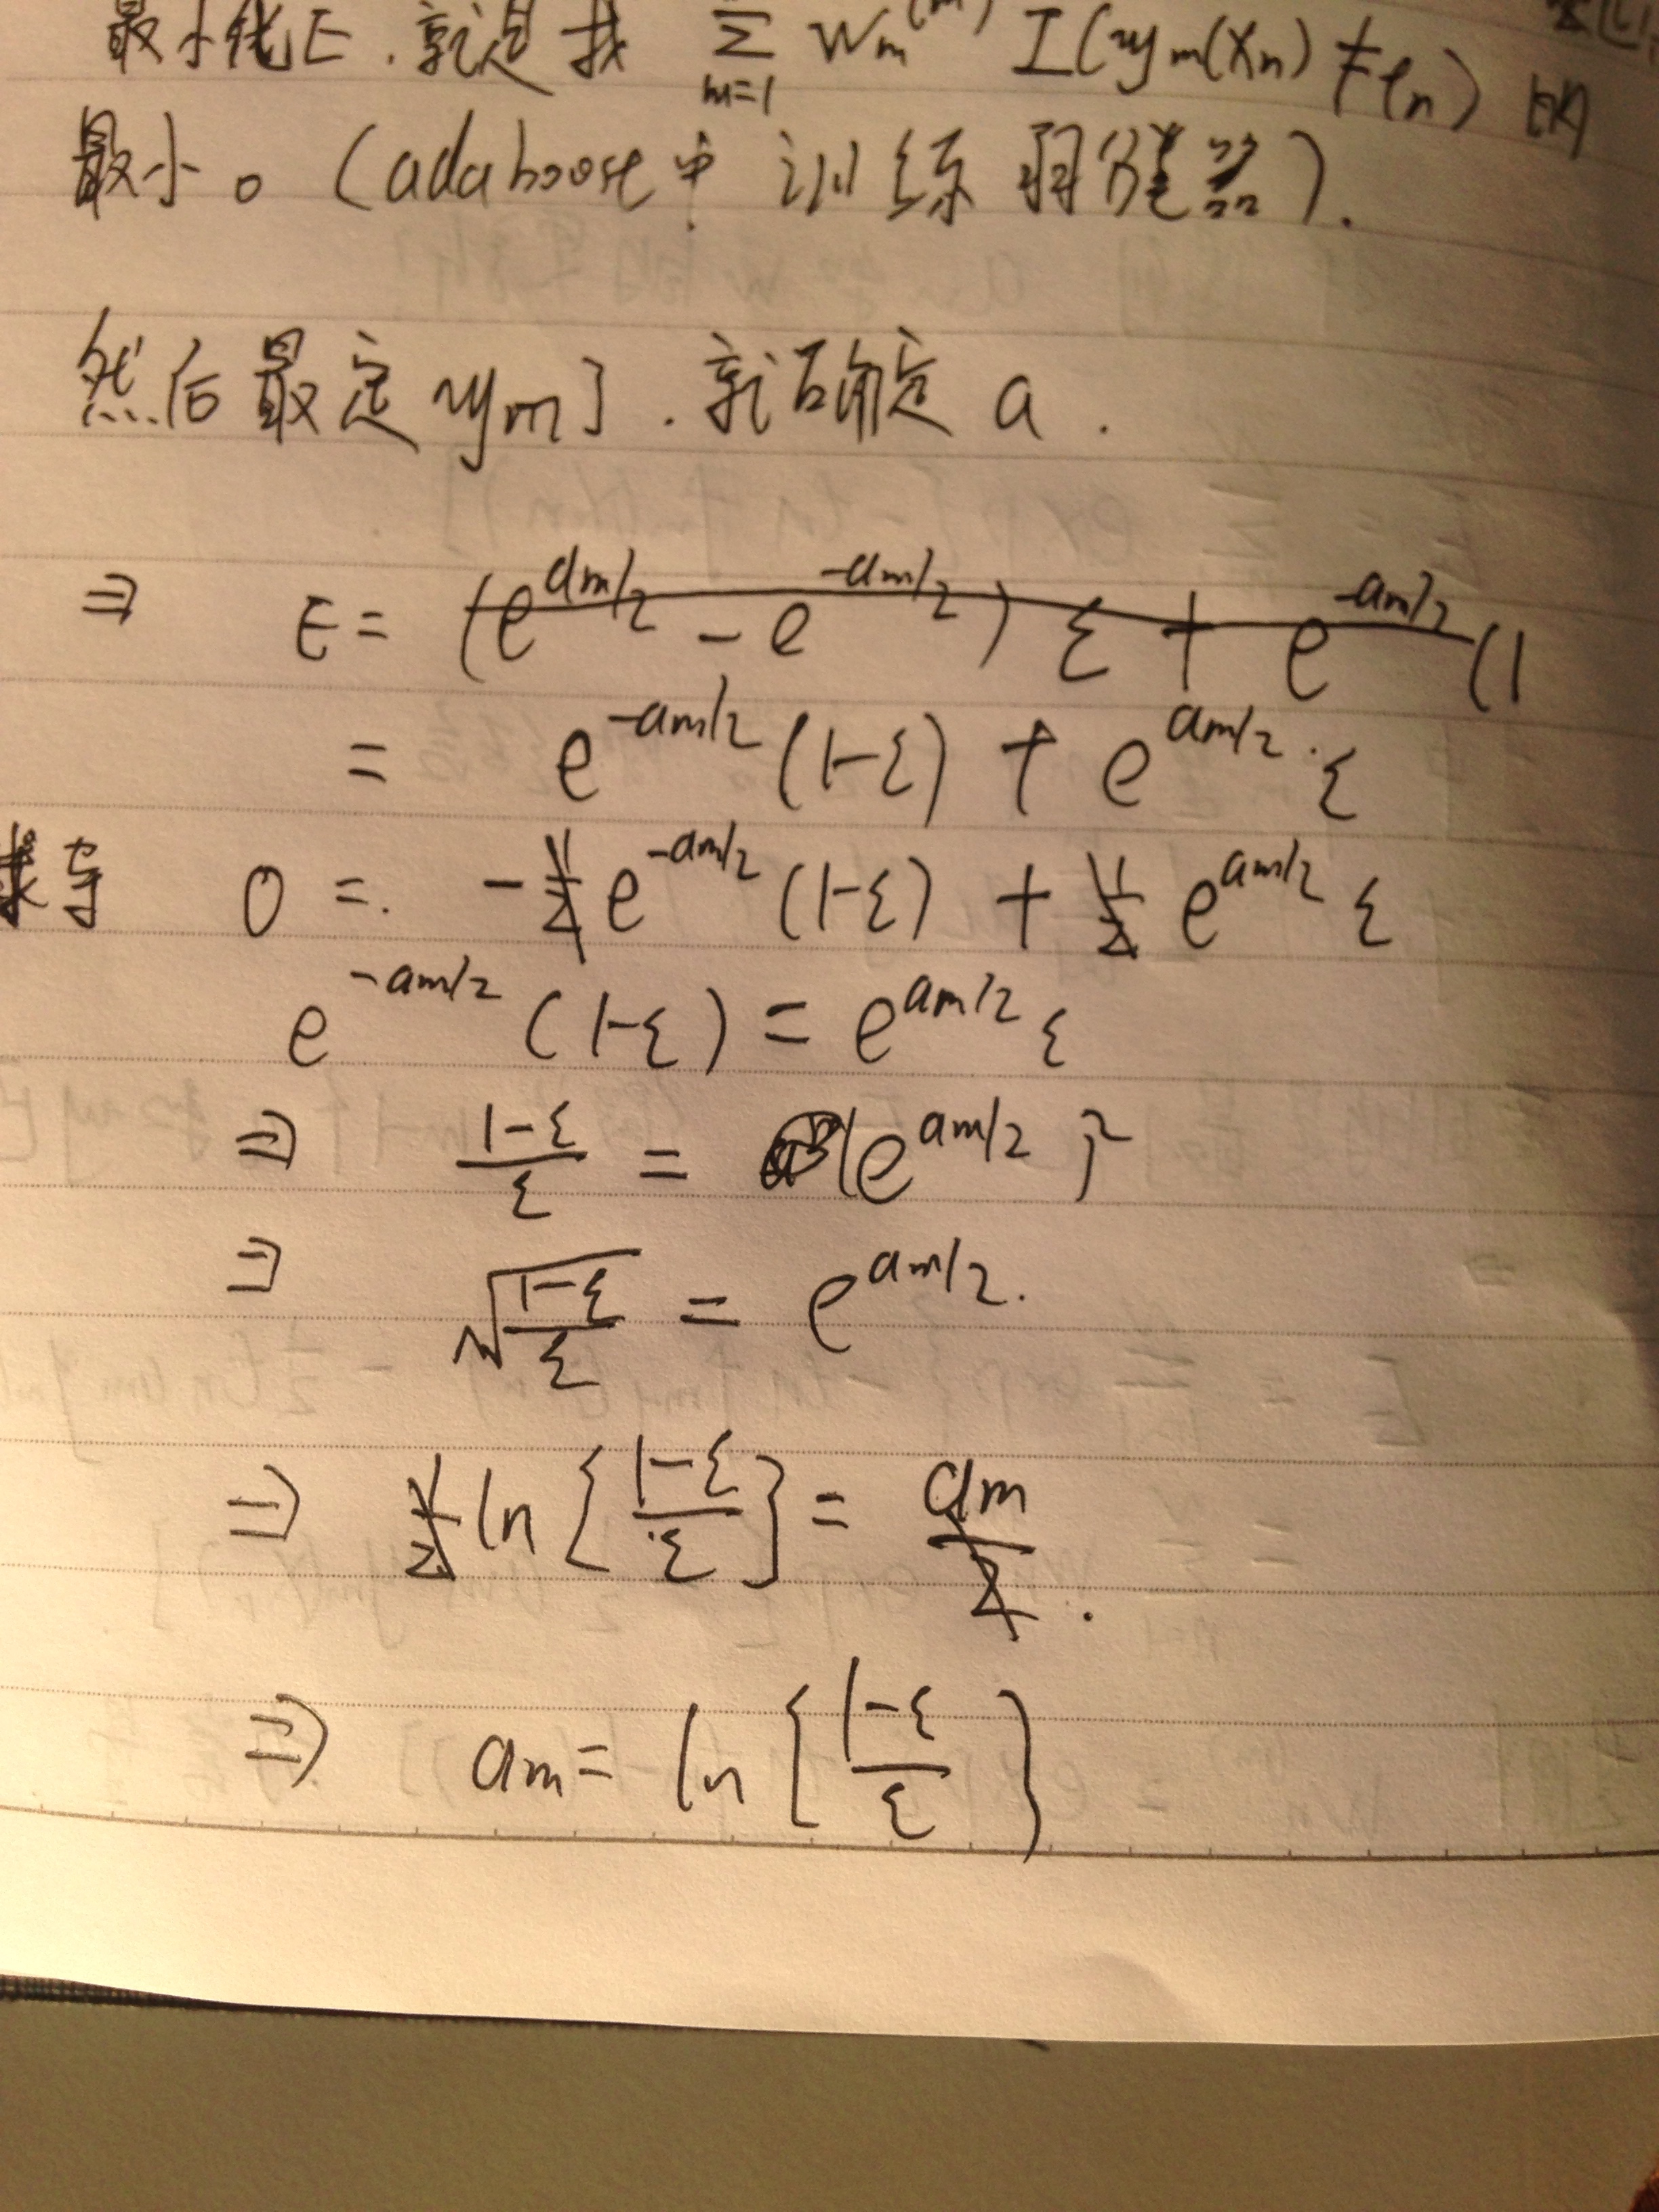 最小化E.就是找 Σ m=1 Wm^(m) I(ym(xn) ≠ tn) 的
最小。(adaboost中 训练弱分类器).
然后最定ym了.就确定 a.
⇒ E = (e^{am/2} - e^{-am/2}) ε + e^{-am/2} (1
= e^{-am/2} (1-ε) + e^{am/2} · ε
求导 0 = -1/2 e^{-am/2} (1-ε) + 1/2 e^{am/2} ε
e^{-am/2} (1-ε) = e^{am/2} ε
⇒ (1-ε)/ε = (e^{am/2})²
⇒ √((1-ε)/ε) = e^{am/2}.
⇒ 1/2 ln {(1-ε)/ε} = am/2.
⇒ am = ln {(1-ε)/ε}